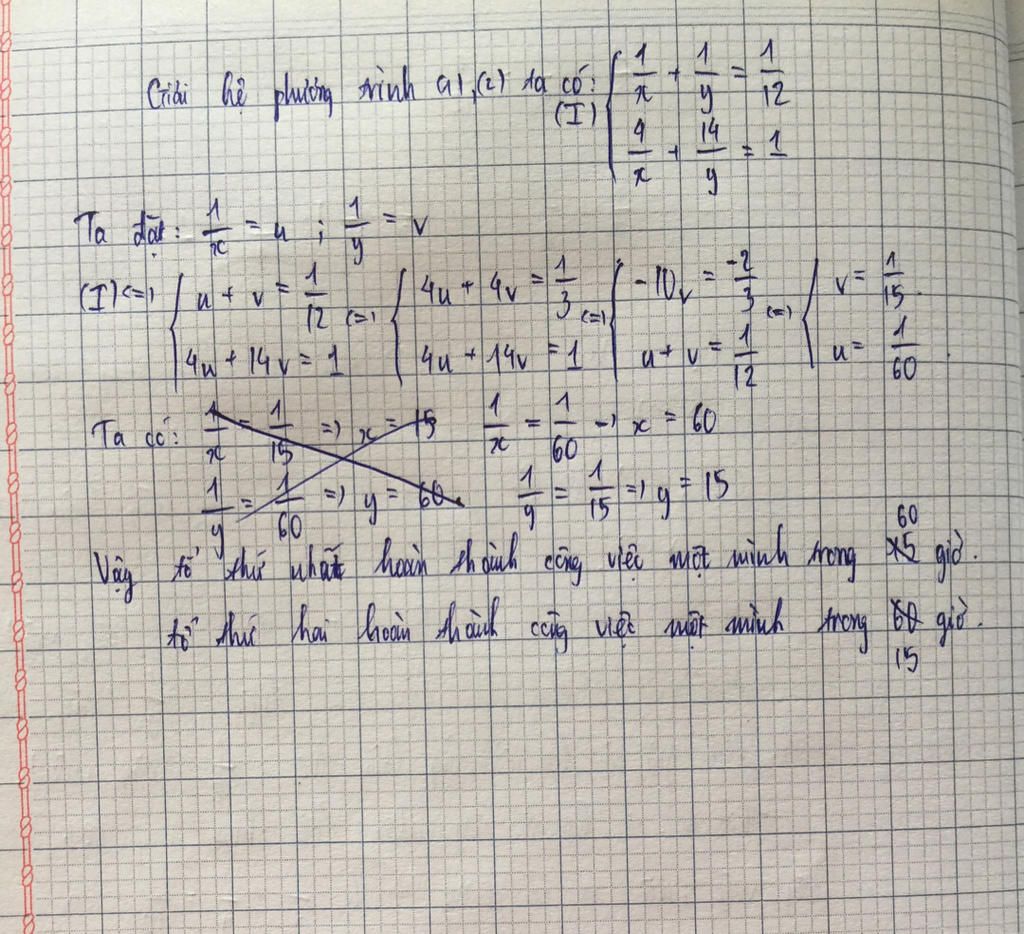 Giải hệ phương trình (1), (2) ta có: (I) { 1/x + 1/y = 1/12
4/x + 14/y = 1
Ta đặt: 1/x = u ; 1/y = v
(I) <=> { u + v = 1/12 <=> { 4u + 4v = 1/3 <=> { -10v = -2/3 <=> { v = 1/15
4u + 14v = 1 4u + 14v = 1 u + v = 1/12 u = 1/60
Ta có: 1/x = 1/15 => x = 15 1/x = 1/60 => x = 60
1/y = 1/60 => y = 60 1/y = 1/15 => y = 15
60
Vậy tổ thứ nhất hoàn thành công việc một mình trong 15 giờ.
tổ thứ hai hoàn thành công việc một mình trong 60 giờ.
15